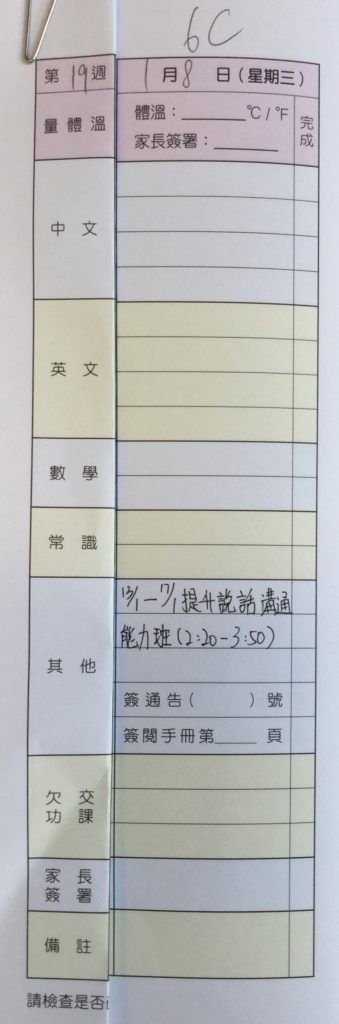 6C
第19週 1月8日(星期三)
量體溫 體溫：______℃/℉ 完成
家長簽署：______
中文
英文
數學
常識
13/1—17/1提升說話溝通
能力班(2:20-3:50)
其他
簽通告( )號
簽閱手冊第____頁
欠交
功課
家長
簽署
備註
請檢查是否